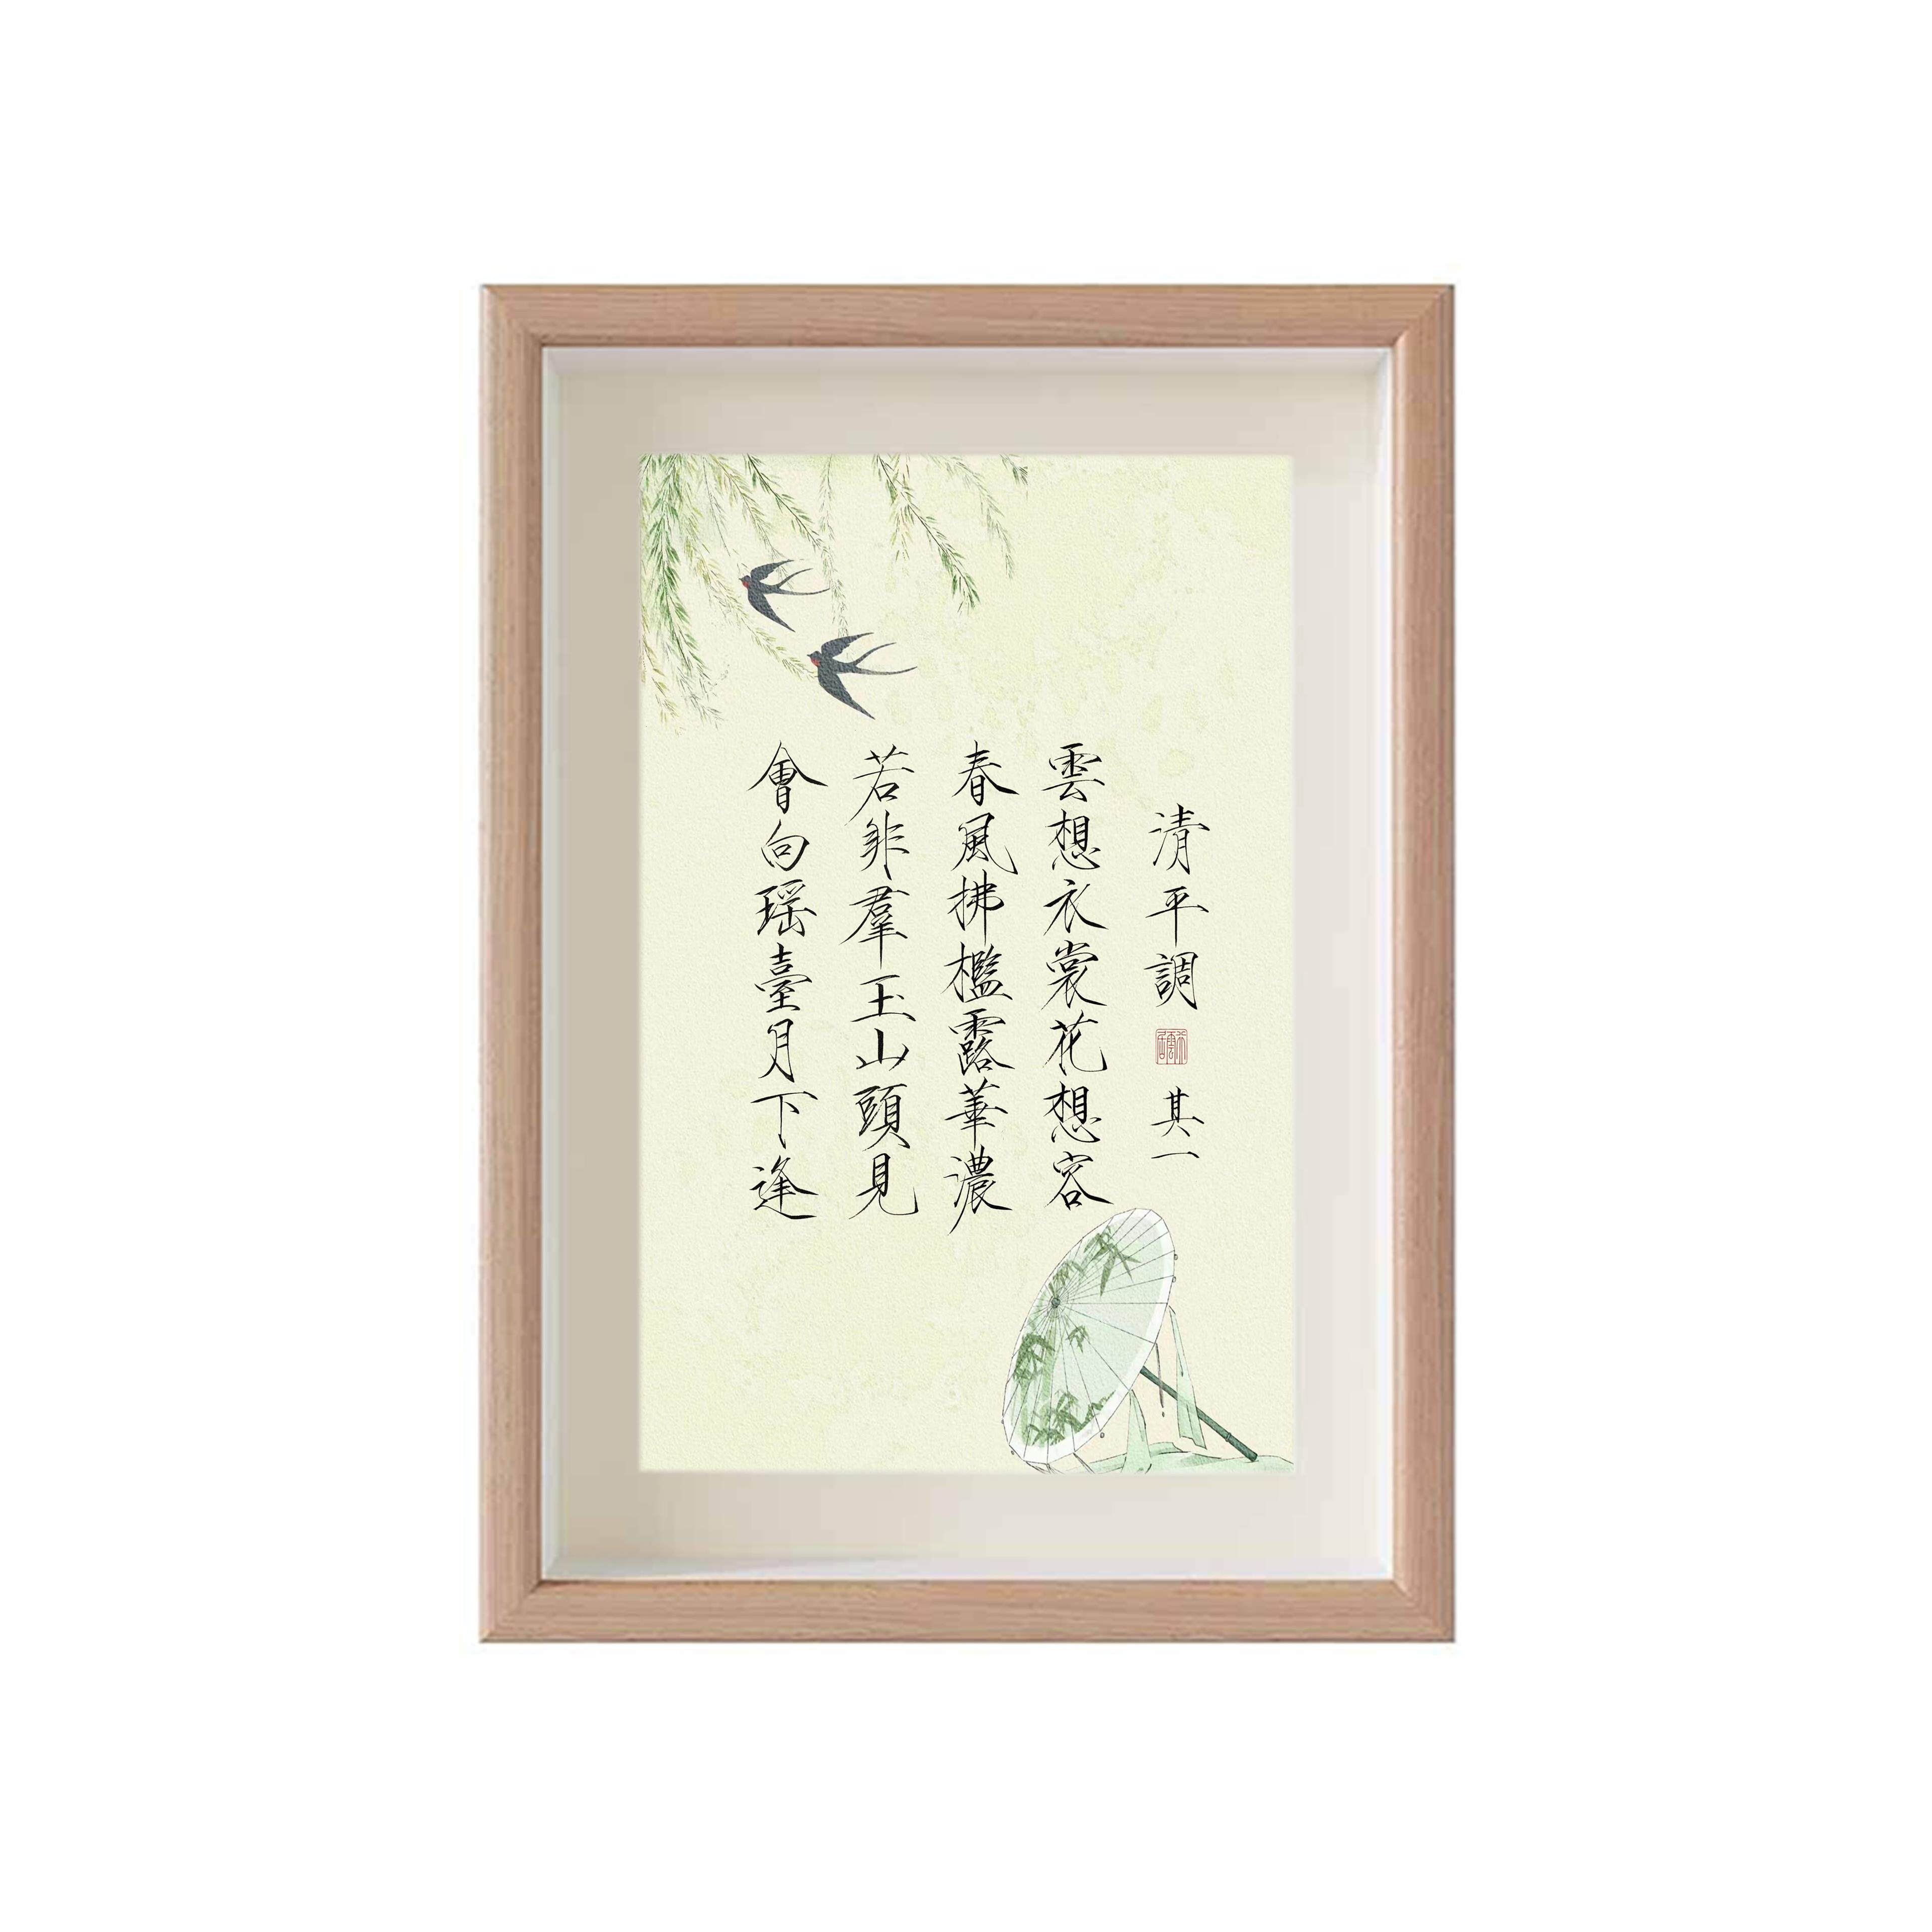 清平調 其一
雲想衣裳花想容
春風拂檻露華濃
若非羣玉山頭見
會向瑶臺月下逢